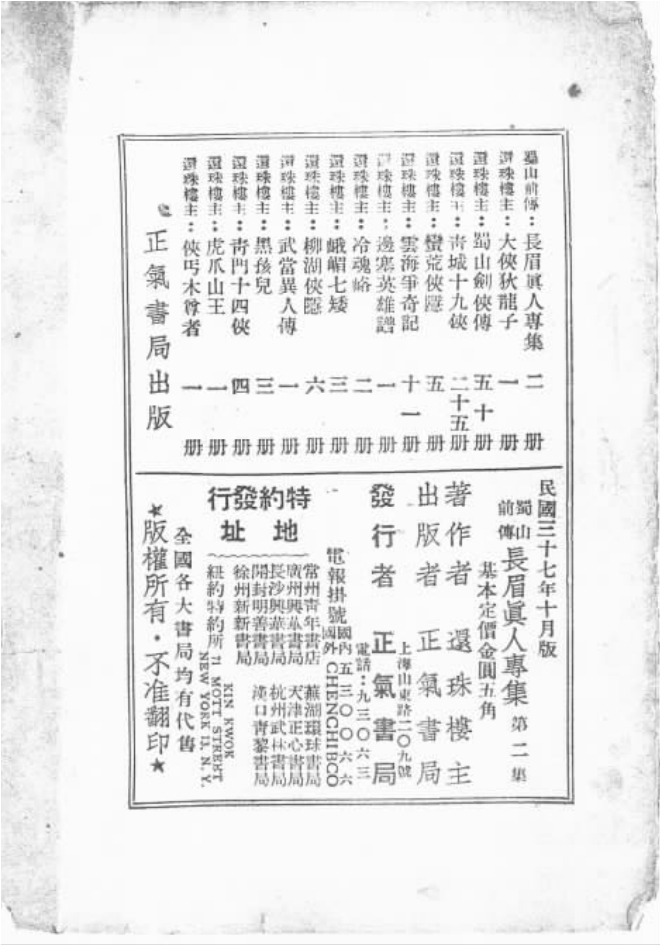 蜀山前傳：長眉眞人專集 二 册
還珠樓主：大俠狄龍子 一 册
還珠樓主：蜀山劍俠傳 五十 册
還珠樓主：靑城十九俠 二十五 册
還珠樓主：蠻荒俠隱 五 册
還珠樓主：雲海爭奇記 十一 册
還珠樓主：邊塞英雄譜 一 册
還珠樓主：冷魂峪 二 册
還珠樓主：峨嵋七矮 三 册
還珠樓主：柳湖俠隱 六 册
還珠樓主：武當異人傳 一 册
還珠樓主：黑孩兒 三 册
還珠樓主：靑門十四俠 四 册
還珠樓主：虎爪山王 一 册
還珠樓主：俠丐木尊者 一 册
正氣書局出版
民國三十七年十月版
蜀山前傳 長眉眞人專集 第二集
基本定價金圓五角
著作者 還珠樓主
出版者 正氣書局
上海山東路二〇九號
發行者 正氣書局
電話：九三〇六三
電報掛號 國內 五三〇〇六六
國外 CHENCHIBCO
特約發行
地址
常州靑年書店 蕪湖環球書局
廣州興華書局 天津正心書局
長沙興華書局 杭州武林書局
開封明善書局 漢口靑黎書局
徐州新新書局
紐約特約所
KIN KWOK
11 MOTT STREET
NEW YORK 13, N. Y.
全國各大書局均有代售
★版權所有·不准翻印★